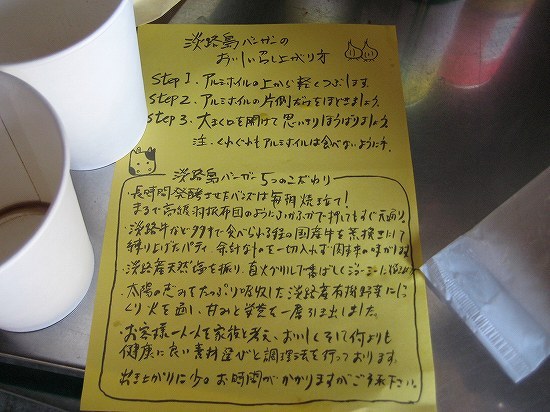 淡路島バーガーの
おいしい召し上がり方
Step 1. アルミホイルの上から軽くつぶします。
Step 2. アルミホイルの片側だけをほどきましょう。
Step 3. 大きく口を開けて思いきりほうばりましょう。
注. くれぐれもアルミホイルは食べないように。
淡路島バーガー 5つのこだわり
・長時間発酵させたバンズは毎朝焼き
まるで高級羽根布団のようにふかふかで押してもすぐ元通り。
・淡路牛など 食べられる程の国産牛を荒挽きにして
練り上げたパティ 余計なものを一切入れず肉本来の味がします。
・淡路産天然塩を振り、直火グリルで香ばしくジューシーに
・太陽のめぐみをたっぷり吸収した淡路産有機野菜にじっ
くり火を通し、甘みと栄養を一層引き出しました。
・お客様一人一人を家族と考え、おいしくそして何よりも
健康に良い素材選びと調理法を行っております。
出き上がりに少々お時間がかかりますがご了承下さい。